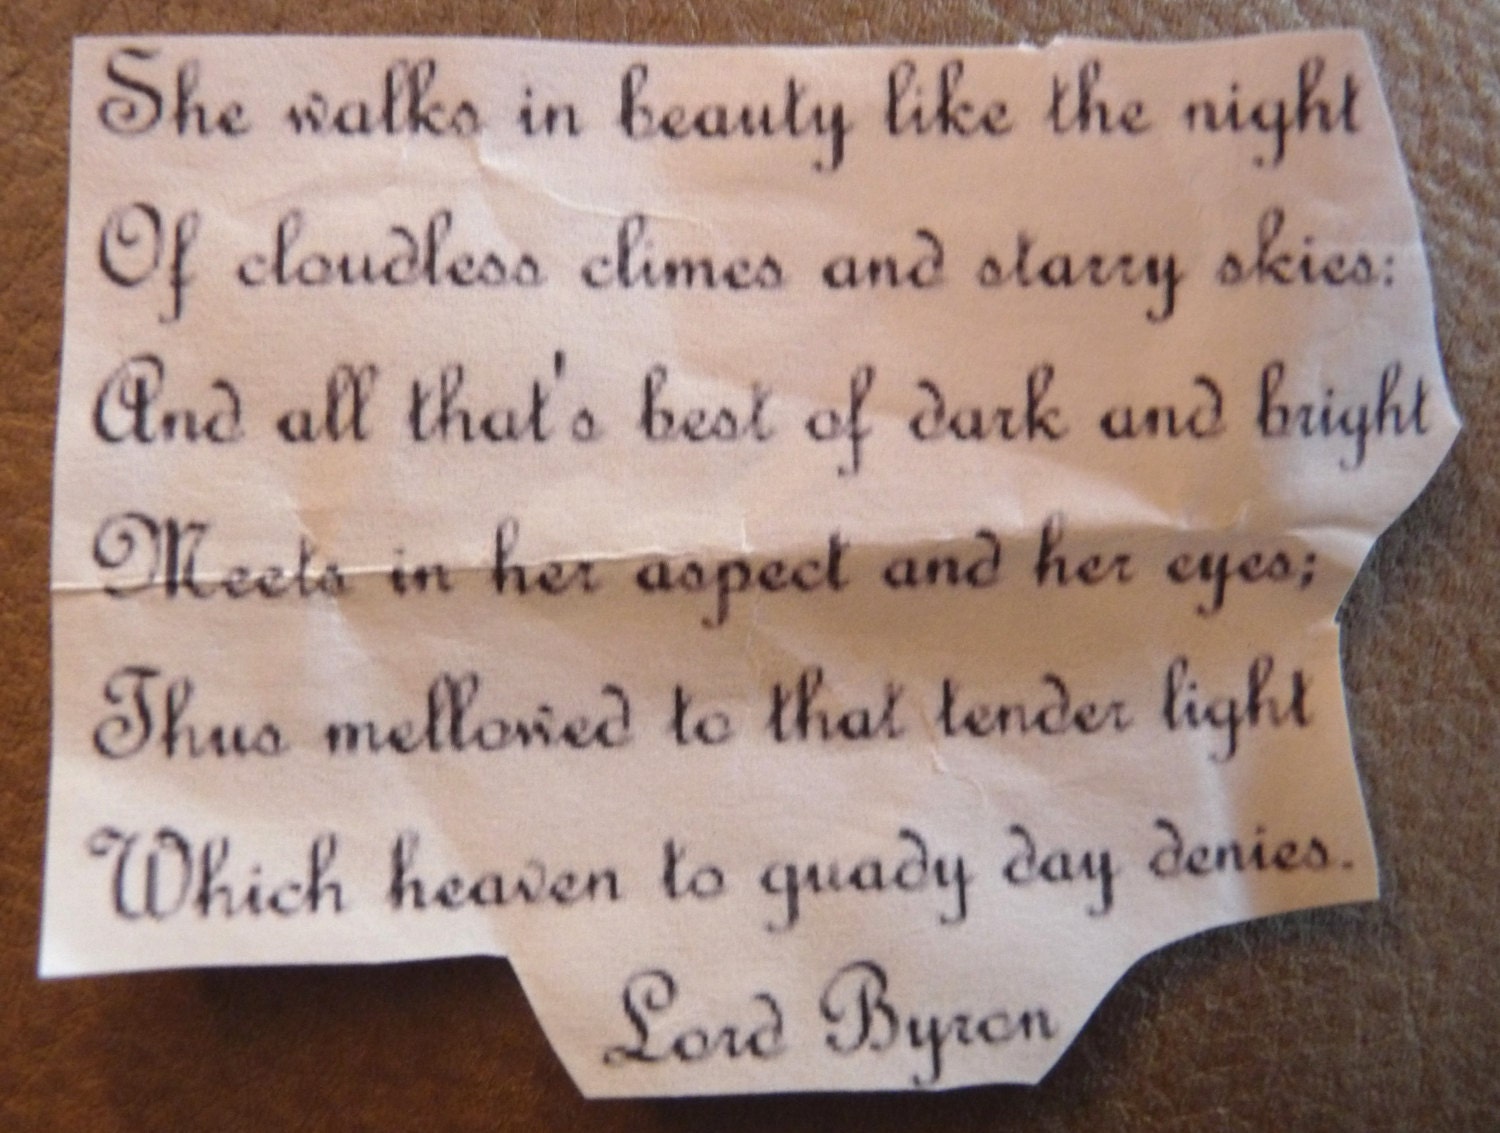 She walks in beauty like the night
Of cloudless climes and starry skies:
And all that's best of dark and bright
Meets in her aspect and her eyes;
Thus mellowed to that tender light
Which heaven to guady day denies.
Lord Byron